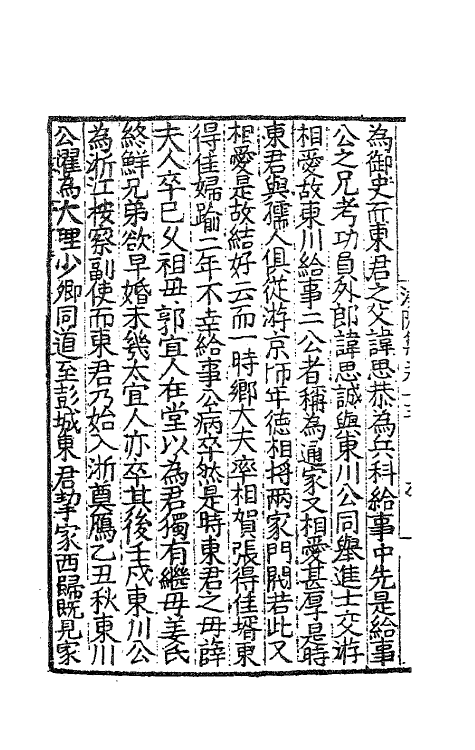 為御史而東君之父諱思恭為兵科給事中先是給事
公之兄考功員外郎諱思誠與東川公同舉進士交游
相愛故東川給事二公者稱為通家又相愛甚厚是時
東君與孺人俱從游京師年德相將兩家門閥若此又
相愛是故結好云而一時鄉大夫率相賀張得佳壻東
得佳婦踰二年不幸給事公病卒然是時東君之母薛
夫人卒已久祖母郭宜人在堂以為君獨有繼母姜氏
終鮮兄弟欲早婚未幾太宜人亦卒其後壬戌東川公
為浙江按察副使而東君乃始入浙奠鴈乙丑秋東川
公擢為大理少卿同道至彭城東君挈家西歸既見家